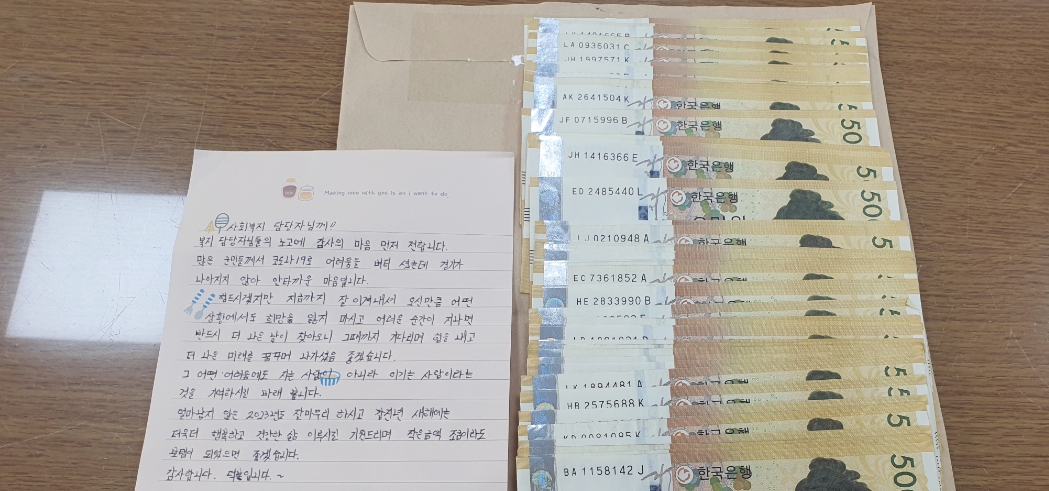 Making love with you is all i want to do
사회복지 담당자님께!!
복지 담당자님들의 노고에 감사의 마음 먼저 전합니다.
많은 국민들께서 코로나19로 어려움을 버텨 셨는데 경기가
나아지지 않아 안타까운 마음입니다.
힘드시겠지만 지금까지 잘 이겨내서 오신만큼 어떤
상황에서도 희망을 잃지 마시고 어려운 순간이 지나면
반드시 더 나은 날이 찾아오니 그때까지 기다리며 힘을 내고
더 나은 미래를 꿈꾸며 나가셨음 좋겠습니다.
그 어떤 어려움에도 지는 사람이 아니라 이기는 사람이라는
것을 기억하시길 바래 봅니다.
얼마남지 않은 2023년도 잘마무리 하시고 갑진년 새해에는
더욱더 행복하고 건강한 삶 이루시길 기원드리며 작은금액 조금이라도
보탬이 되었으면 좋겠습니다.
감사합니다.
LA 0936031 C
JH 1997571 K
AK 2641504 K
한국은행
JF 0715996 B
한국은행
50
JH 1416366 E
한국은행
5
ED 2485440 L
한국은행
50
LJ 0210948 A
한국은행
5
EC 7361852 A
한국은행
HE 2833990 B
한국은행
LK 1894481 A
HB 2575688 K
한국은행
5
BA 1158142 J
한국은행
50